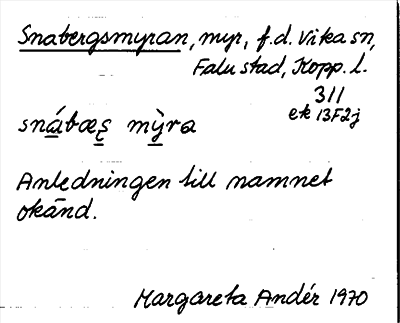 Snabergsmyran, myr, f.d. Vika sn,
Falu stad, Kopp. l.
311
ek 13F2j
snábæs mỳra
Anledningen till namnet
okänd.
Margareta Andér 1970